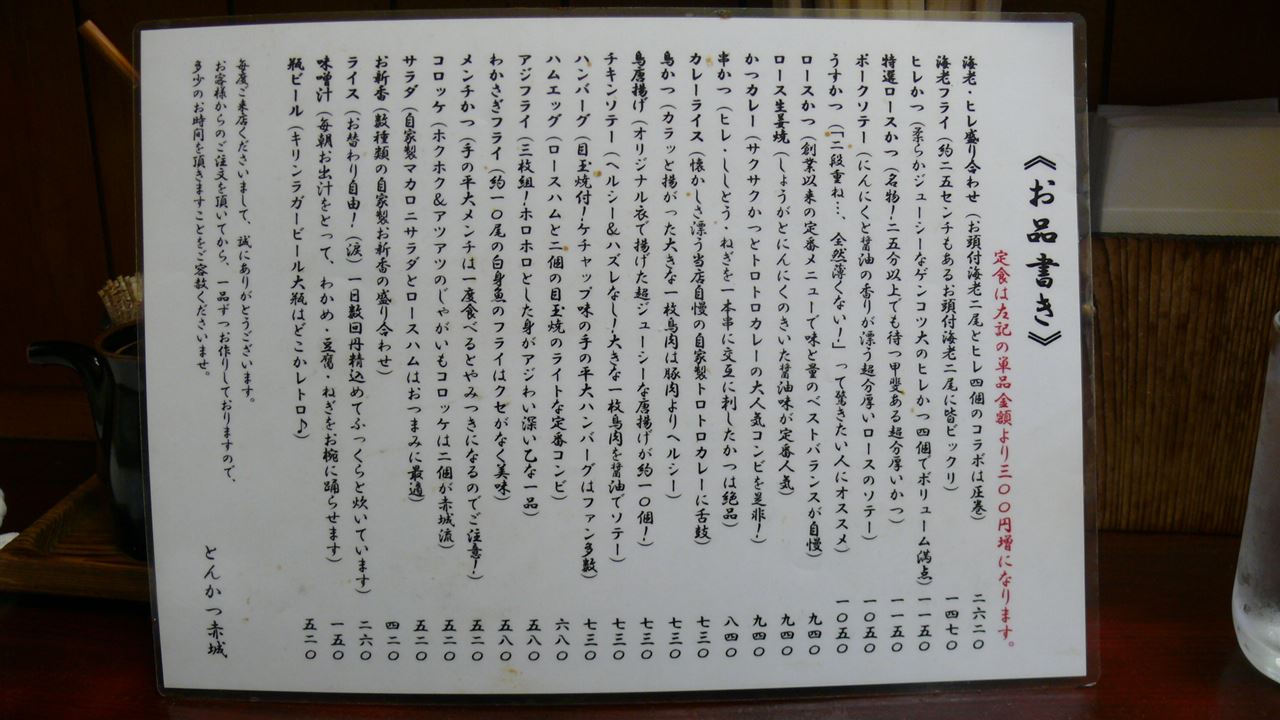 《お品書き》
定食は左記の単品金額より三〇〇円増になります。
海老・ヒレ盛り合わせ（お頭付海老二尾とヒレ四個のコラボは圧巻） 二六二〇
海老フライ（約二五センチもあるお頭付海老二尾に皆ビックリ） 一四七〇
ヒレかつ（柔らかジューシーなゲンコツ大のヒレかつ四個でボリューム満点） 一一五〇
特選ロースかつ（名物！二五分以上でも待つ甲斐ある超分厚いかつ） 一一五〇
ポークソテー（にんにくと醤油の香りが漂う超分厚いロースのソテー） 一〇五〇
うすかつ（「二段重ね…、全然薄くない！」って驚きたい人にオススメ） 一〇五〇
ロースかつ（創業以来の定番メニューで味と量のベストバランスが自慢） 九四〇
ロース生姜焼（しょうがとにんにくのきいた醤油味が定番人気） 九四〇
かつカレー（サクサクかつとトロトロカレーの大人気コンビを是非！） 九四〇
串かつ（ヒレ・ししとう・ねぎを一本串に交互に刺したかつは絶品） 八四〇
カレーライス（懐かしさ漂う当店自慢の自家製トロトロカレーに舌鼓） 七三〇
鳥かつ（カラッと揚がった大きな一枚鳥肉は豚肉よりヘルシー） 七三〇
鳥唐揚げ（オリジナル衣で揚げた超ジューシーな唐揚げが約一〇個！） 七三〇
チキンソテー（ヘルシー＆ハズレなし！大きな一枚鳥肉を醤油でソテー） 七三〇
ハンバーグ（目玉焼付！ケチャップ味の手の平大ハンバーグはファン多数） 七三〇
ハムエッグ（ロースハムと二個の目玉焼のライトな定番コンビ） 六八〇
アジフライ（三枚組！ホロホロとした身がアジわい深い乙な一品） 五八〇
わかさぎフライ（約一〇尾の白身魚のフライはクセがなく美味） 五八〇
メンチかつ（手の平大メンチは一度食べるとやみつきになるのでご注意！） 五二〇
コロッケ（ホクホク＆アツアツのじゃがいもコロッケは二個が赤城流） 五二〇
サラダ（自家製マカロニサラダとロースハムはおつまみに最適） 五二〇
お新香（数種類の自家製お新香の盛り合わせ） 四二〇
ライス（お替わり自由！（涙）一日数回丹精込めてふっくらと炊いています） 二六〇
味噌汁（毎朝お出汁をとって、わかめ・豆腐・ねぎをお椀に踊らせます） 一五〇
瓶ビール（キリンラガービール大瓶はどこかレトロ♪） 五二〇
毎度ご来店くださいまして、誠にありがとうございます。
お客様からのご注文を頂いてから、一品ずつお作りしておりますので、
多少のお時間を頂きますことをご容赦くださいませ。
とんかつ赤城